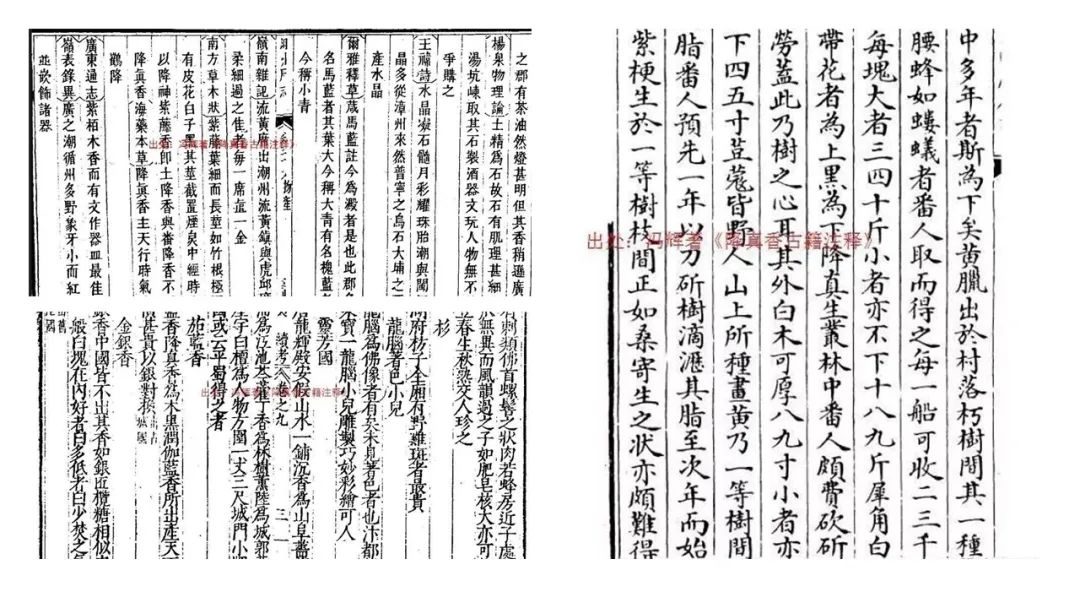 之郡有茶油然燈甚明但其香稍遜廣
楊泉物理論土精爲石故石有肌理甚細
湯坑取其石製酒器文玩人物無不
爭購之
詩水晶凝石髓月彩耀珠胎潮與閩
晶多從漳州來然普寧之烏石大埔之
產水晶
爾雅釋草葴馬藍註今爲澱者是也此郡
名馬藍者其葉大今稱大青有名槐藍者
今稱小青
嶺南雜記流黃廣出潮州流黃鎮與虎邱
柔細過之佳者每一席直一金
南方草木狀紫藤葉細而長莖如竹根極
有皮花白子黑其莖截置煙炱中經時
以降神紫藤香卽土降香與番降香不
降眞香海藥本草降眞香主天行時氣
鸛降
廣東通志紫栢木香而有文作器皿最佳
嶺表錄異廣之潮循州多野象牙小而紅
並嵌飾諸器
出处：冯辉著《降真香古籍注释》
有刺類佛首螺髻之狀肉若蜂房近子處
於無異而風韻過之子如肥皂核大亦可
春生秋熟交人珍之
杉
府枋子全厢有野雞斑者最貴
龍腦著色小兒
龍腦爲佛像者有矣未見著色者也汴都
宋寶一龍腦小兒雕製巧妙彩繪可人
靈芳國
龍輝殿安假山水一鋪沉香爲山阜薔
爲江池苓藿丁香爲林樹薰陸爲城郭
爲屋宇白檀爲人物方圍一丈三尺城門小
國或云平蜀得之者
續考 卷之九 三
茄藍香
藍香降真香爲木黑潤伽藍香所出產天
甚貴以銀對換
金銀香
銀香中國皆不出其香如銀匠欖糖相似
般白塊在内好者白多低者白少焚之
出处：冯辉著《降真香古籍注释》
中多年者斯為下矣黃臘出於村落朽樹間其一種
腰蜂如螻蟻者番人取而得之每一船可收二三千
每塊大者三四十斤小者亦不下十八九斤犀角白
帶花者為上黑為下降真生叢林中番人頗費砍斫
勞蓋此乃樹之心耳其外白木可厚八九寸小者亦
下四五寸荳蔻皆野人山上所種畫黃乃一等樹間
脂番人預先一年以刀斫樹滴瀝其脂至次年而始
紫梗生於一等樹枝間正如桑寄生之狀亦頗難得
出处：冯辉著《降真香古籍注释》